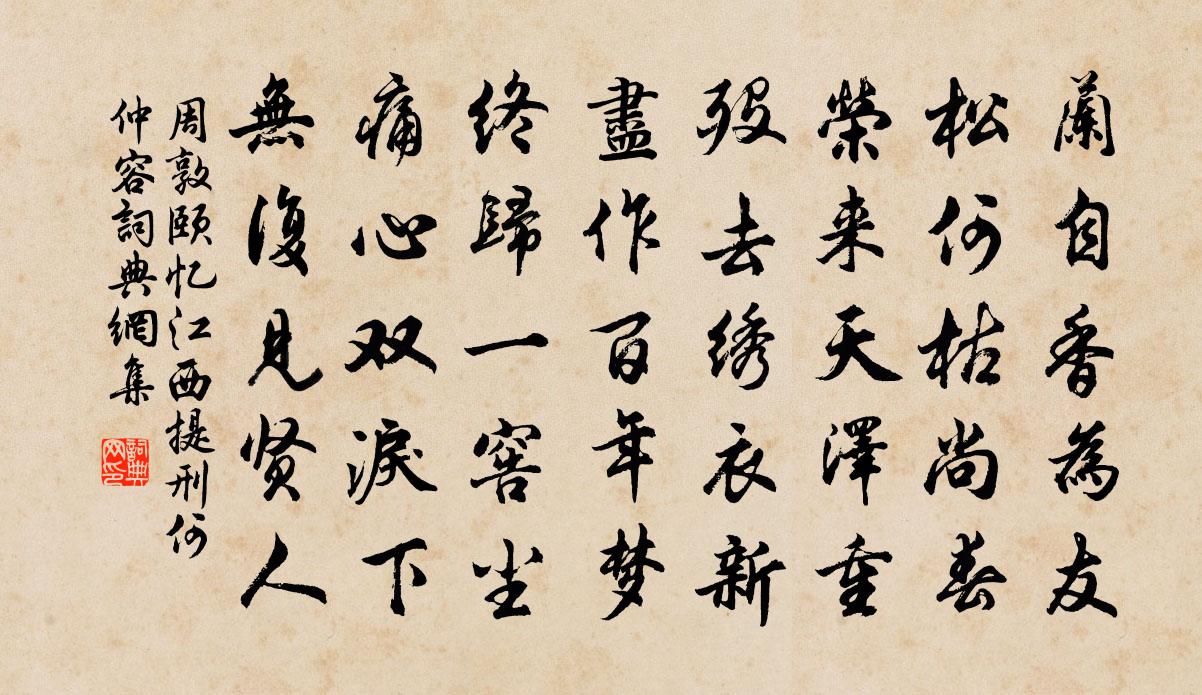 蘭自香為友
松何枯尚春
榮來天澤重
歿去绣衣新
盡作百年梦
终歸一窖尘
痛心双淚下
無復見贤人
周敦颐忆江西提刑何
仲容詞典網集
詞典网印